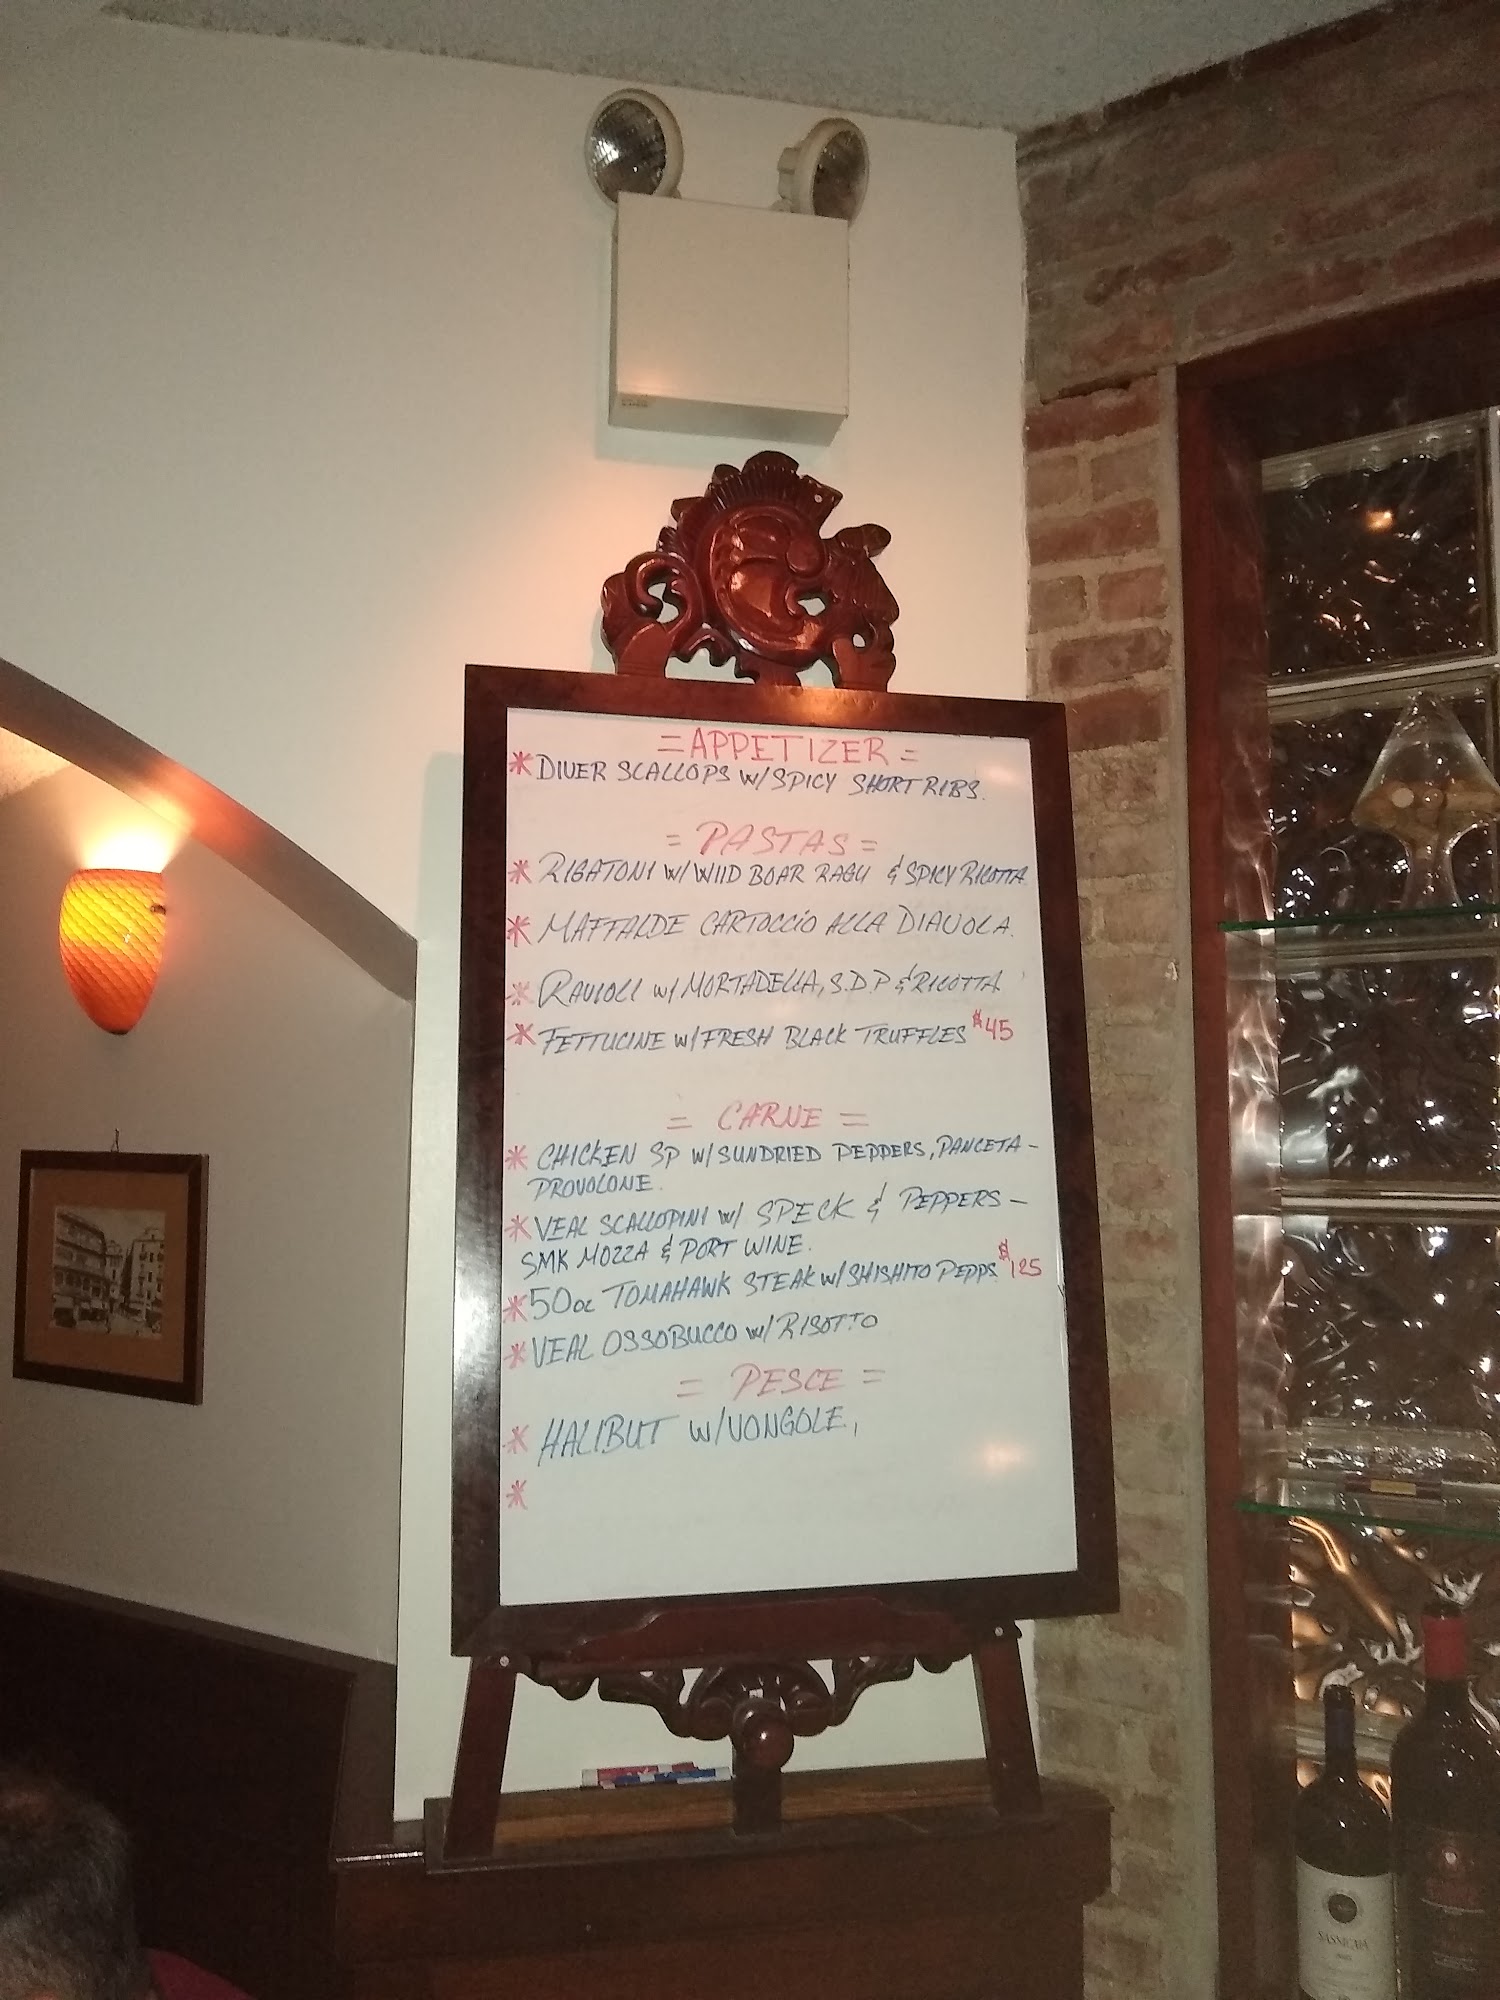 = APPETIZER =
* DIVER SCALLOPS W/SPICY SHORT RIBS.
= PASTAS =
* RIGATONI W/ WIID BOAR RAGU & SPICY RICOTTA
* MAFFALDE CARTOCCIO ALLA DIAVOLA.
* RAVIOLI W/ MORTADELLA, S.D.P & RICOTTA
* FETTUCINE W/ FRESH BLACK TRUFFLES $45
= CARNE =
* CHICKEN SP W/ SUNDRIED PEPPERS, PANCETA -
PROVOLONE.
* VEAL SCALLOPINI W/ SPECK & PEPPERS -
SMK MOZZA & PORT WINE.
* 50oz TOMAHAWK STEAK W/ SHISHITO PEPPS. $125
* VEAL OSSOBUCCO W/ RISOTTO
= PESCE =
* HALIBUT W/VONGOLE,
*
SASSICAIA